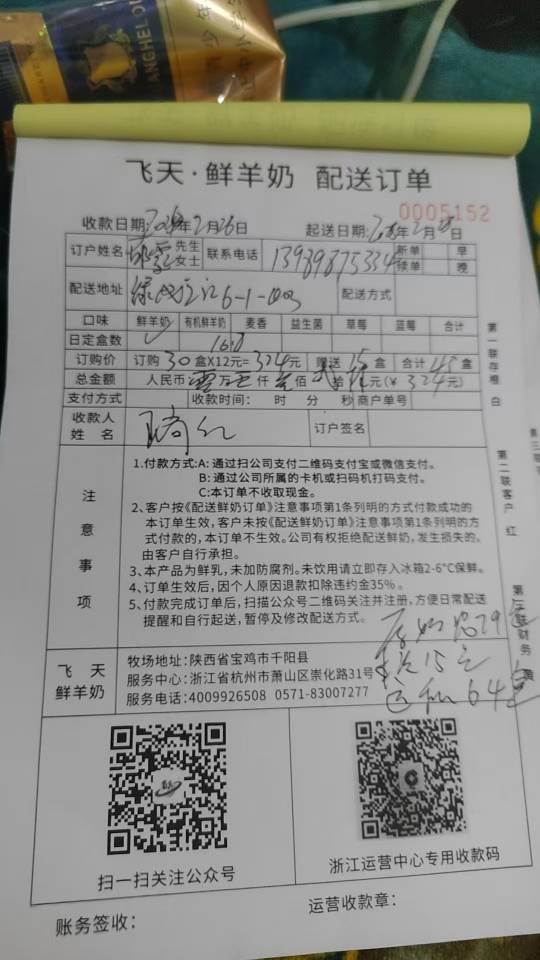 ANGHELOU
飞天·鲜羊奶 配送订单
0005152
收款日期: 年2月26日 起送日期: 年2月 日
订户姓名 先生 女士 联系电话 13989875334 新单 续单 早 晚
配送地址 6-1- 配送方式
口味 鲜羊奶 有机鲜羊奶 麦香 益生菌 草莓 蓝莓 合计
日定盒数 ✓
订购价 订购30盒X12元=324元 赠送15盒 合计45盒
总金额 人民币 仟 佰 拾 元(¥ 324元)
支付方式 收款时间: 时 分 秒 商户单号
收款人姓名 订户签名
注意事项
1.付款方式:A: 通过扫公司支付二维码支付宝或微信支付。
B: 通过公司所属的卡机或扫码机打码支付。
C:本订单不收取现金。
2、客户按《配送鲜奶订单》注意事项第1条列明的方式付款成功的
本订单生效,客户未按《配送鲜奶订单》注意事项第1条列明的方
式付款的,本订单不生效。公司有权拒绝配送鲜奶,发生损失的,
由客户自行承担。
3、本产品为鲜乳,未加防腐剂。未饮用请立即存入冰箱2-6°C保鲜。
4、订单生效后,因个人原因退款扣除违约金35%。
5、付款完成订单后,扫描公众号二维码关注并注册,方便日常配送
提醒和自行起送,暂停及修改配送方式。
15
64
飞天鲜羊奶
牧场地址:陕西省宝鸡市千阳县
服务中心:浙江省杭州市萧山区崇化路31号
服务电话:4009926508 0571-83007277
第一联存根 白
第二联客户 红
第三联财务 黄
扫一扫关注公众号
浙江运营中心专用收款码
账务签收:
运营收款章: